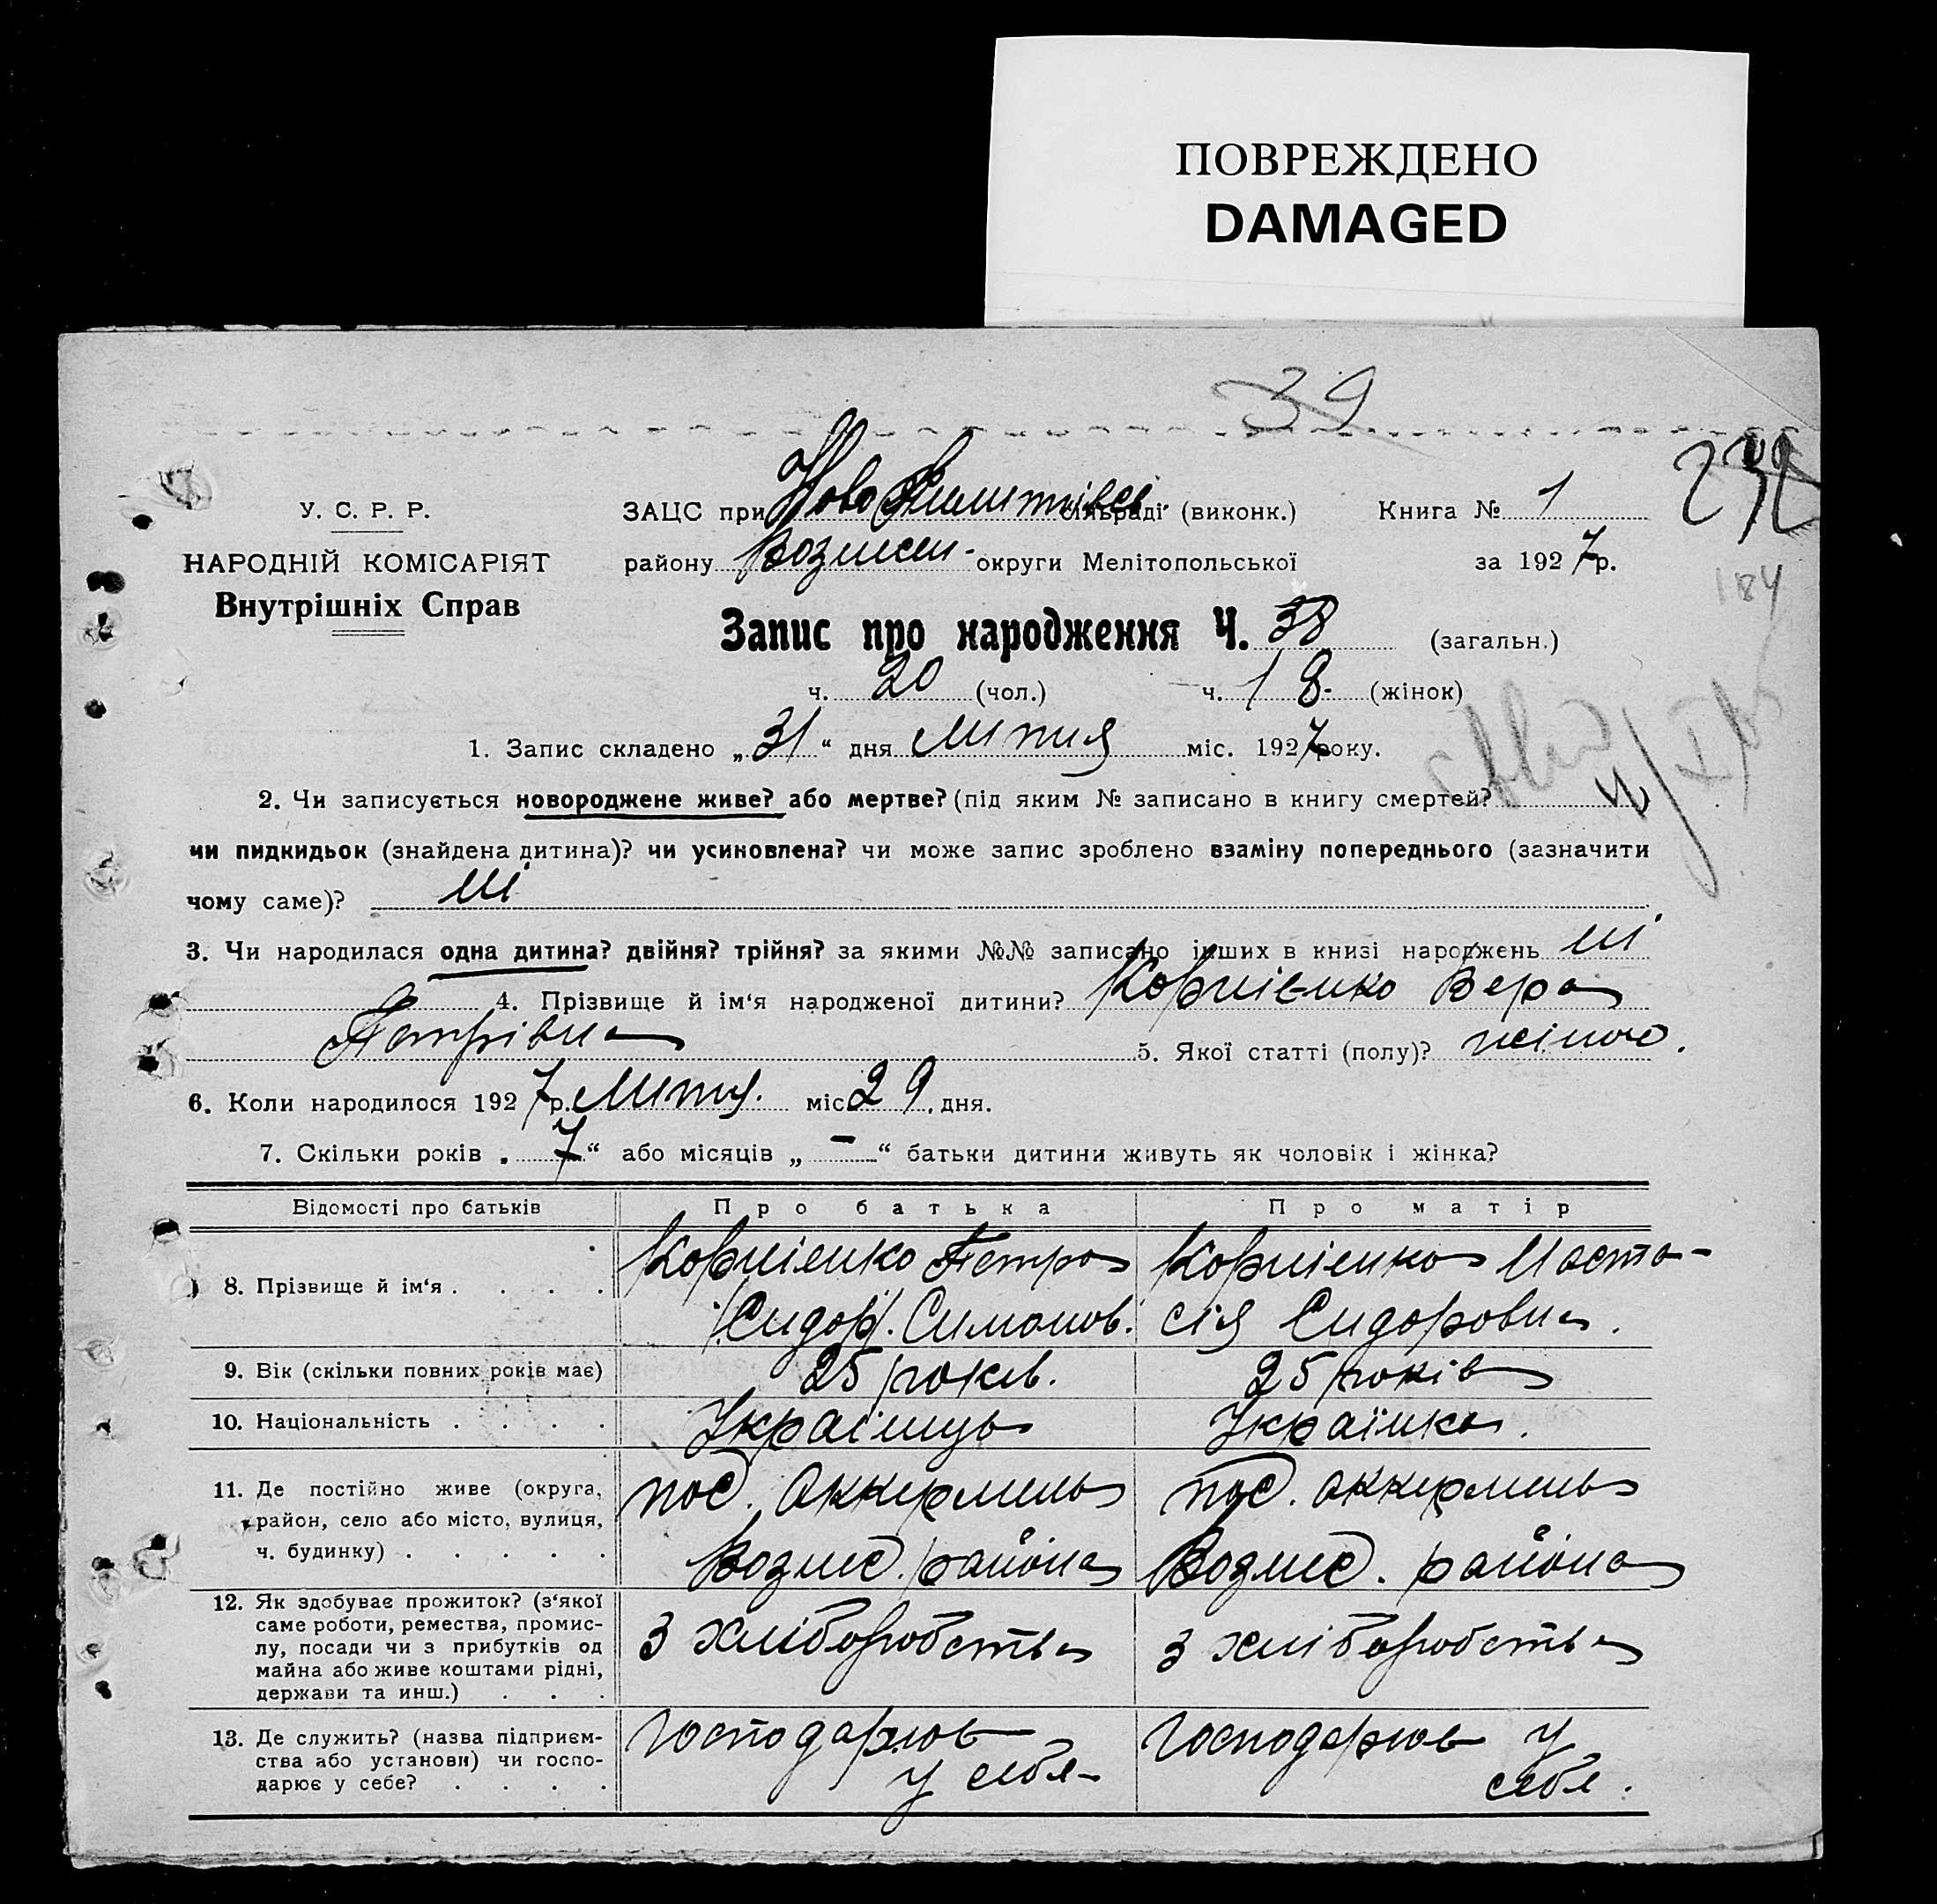 ПОВРЕЖДЕНО
DAMAGED
39
232
184
У. С. Р. Р.
НАРОДНІЙ КОМІСАРІЯТ
Внутрішніх Справ
ЗАЦС при Ново сільраді (виконк.) Книга № 1
району Вознесен- округи Мелітопольської за 1927р.
Запис про народження Ч. 38 (загальн.)
ч. 20 (чол.) ч. 18. (жінок)
1. Запис складено „31“ дня липня міс. 1927 року.
2. Чи записується новороджене живе? або мертве? (під яким № записано в книгу смертей?
чи пидкидьок (знайдена дитина)? чи усиновлена? чи може запис зроблено взаміну попереднього (зазначити
чому саме)? ні
3. Чи народилася одна дитина? двійня? трійня? за якими №№ записано інших в книзі народжень ні
4. Прізвище й ім'я народженої дитини? Корнієнко Вера
Петрівна 5. Якої статті (полу)? жіноч.
6. Коли народилося 1927р. липня. міс 29. дня.
7. Скільки років „7“ або місяців „—“ батьки дитини живуть як чоловік і жінка?
Відомості про батьків Про батька Про матір
8. Прізвище й ім'я . . . . Корнієнко Петро Корнієнко Наста-
/Сидор/. Симонов. сія Сидоровна.
9. Вік (скільки повних років має) 25 років. 25 років
10. Національність . . . . Українць Українка.
11. Де постійно живе (округа, пос. Аккермень пос. Аккермень
район, село або місто, вулиця,
ч. будинку) . . . . . Вознес. района Вознес. района
12. Як здобуває прожиток? (з'якої
саме роботи, ремества, промис-
лу, посади чи з прибутків од З хліборобства З хліборобства
майна або живе коштами рідні,
держави та инш.) . . .
13. Де служить? (назва підприєм- Господарюв Господарюв у
ства або установи) чи госпо-
дарює у себе? . . . . у себя- себя.